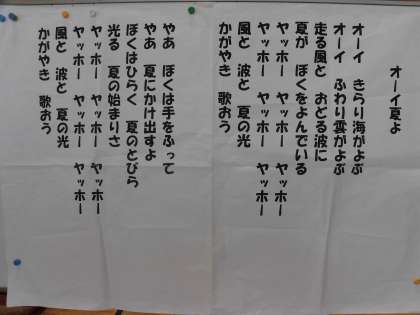 オーイ夏よ
オーイ きらり海がよぶ
オーイ ふわり雲がよぶ
走る風と おどる波に
夏が ぼくをよんでいる
ヤッホー ヤッホー ヤッホー
ヤッホー ヤッホー ヤッホー
風と 波と 夏の光
かがやき 歌おう
やあ ぼくは手をふって
やあ 夏にかけ出すよ
ぼくはひらく 夏のとびら
光る 夏の始まりさ
ヤッホー ヤッホー ヤッホー
ヤッホー ヤッホー ヤッホー
風と 波と 夏の光
かがやき 歌おう